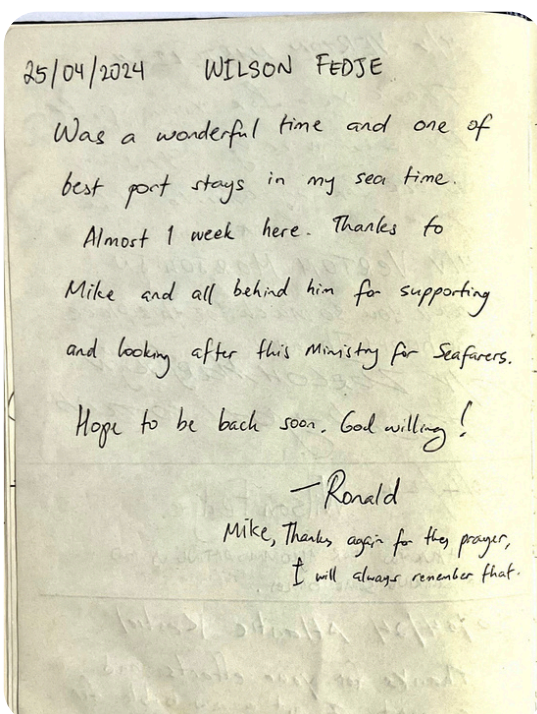 25/04/2024 WILSON FEDJE
Was a wonderful time and one of
best port stays in my sea time.
Almost 1 week here. Thanks to
Mike and all behind him for supporting
and looking after this Ministry for Seafarers.
Hope to be back soon. God willing!
—Ronald
Mike, Thanks again for the prayer,
I will always remember that.